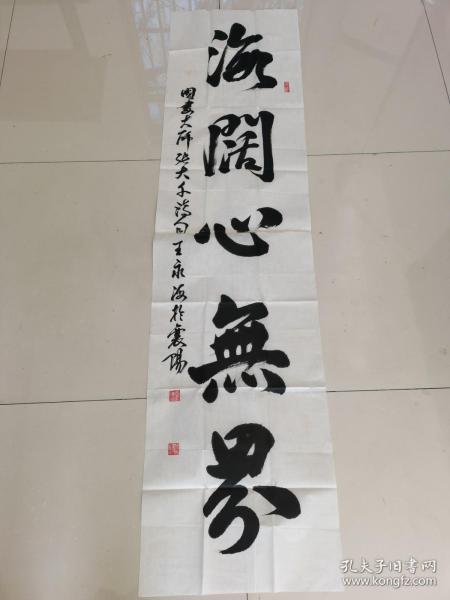 海闊心無界
国画大师张大千诗句王永海於襄陽
孔夫子旧书网
www.kongfz.com